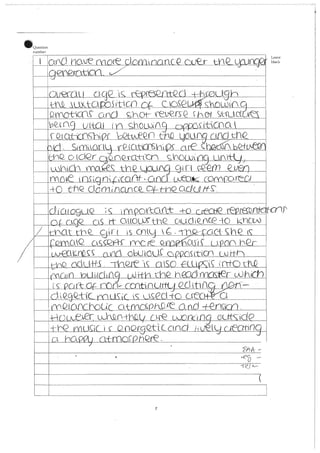 Question
number
Leave
blank
1 and have more dominance over the younger
generation.
Overall age is represented through
the juxtaposition of closeups showing
emotions and shot reverse shot structures
being vital in showing oppositional
relationships between the young and the
old. Similarly relationships are shown between
the older generation showing unity,
which makes the young girl seem even
more insignificant and weak compared
to the dominance of the adults.
dialogue is important to create representations
of age as it allows the audience to know
that the girl is only 16. The fact she is
female asserts more emphasis upon her
weakness and obvious opposition with
the adults. There is also ellipsis into the
main building with the headmaster which
is part of non-continuity editing. non-
diegetic music is used to create a
melancholic atmosphere and tension.
However, when they are working outside
the music is energetic and lively creating
a happy atmosphere.
7